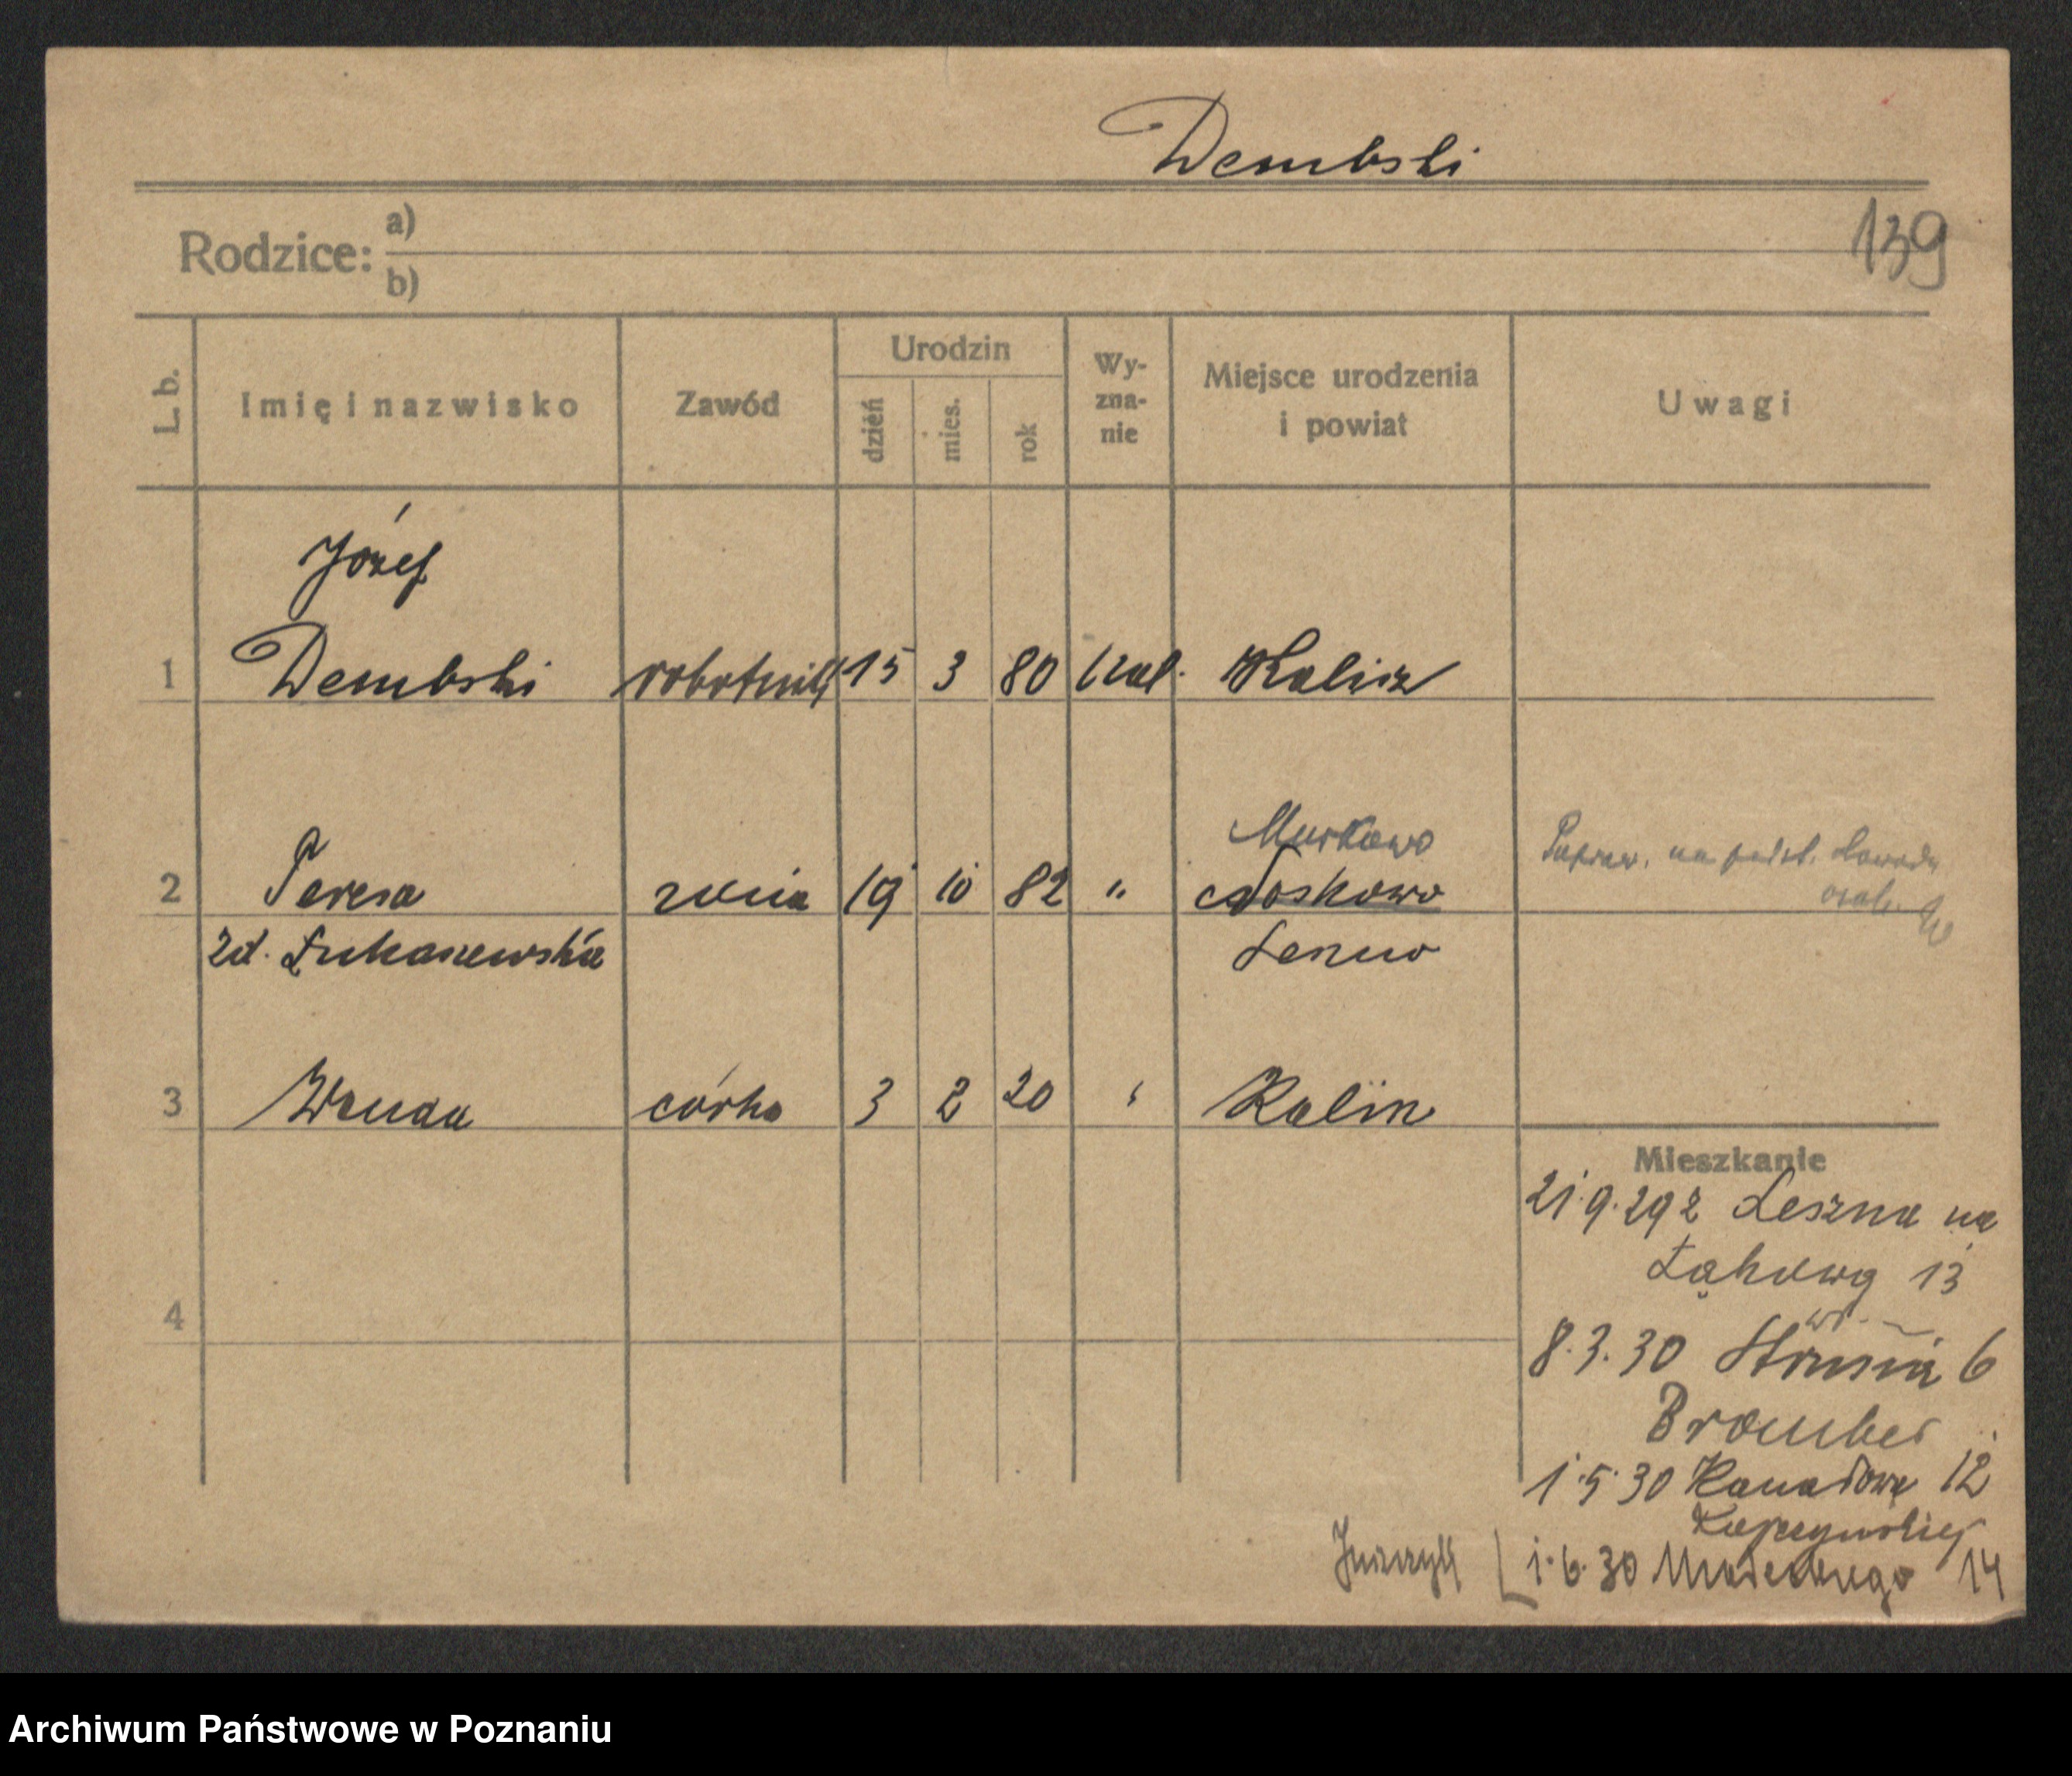 Dembski
139
Rodzice: a)
b)
L. b. Imię i nazwisko Zawód Urodzin dzień mies. rok Wy-zna-nie Miejsce urodzenia i powiat Uwagi
Józef
1 Dembski robotnik 15 3 80 kat. Kalisz
Murkowo
2 Teresa żona 19 10 82 " Noskowo
zd. Łukaszewska Leszno
Popraw. na podst. dowodu
osob.
3 Wanda córka 3 2 20 " Kalisz
Mieszkanie
21.9.29 z Leszna na
Łąkową 13
4
8.3.30 Strusia 6
1.5.30 12
1.6.30 14
Archiwum Państwowe w Poznaniu